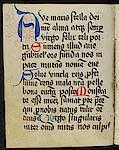 Ave maris stella dei
mater alma atque semper
virgo felix celi por
ta Sumens illud ave
gabrielis ore funda nos in
pace mutans nomen eve
Solve vincla reis profer
lumen cecis mala nostra pelle
bona cuncta posce Monstra
te esse matrem sumat per te pre
ces qui pro nobis natus tulit
esse tuus Virgo singularis
inter omnes mitis nos culpis